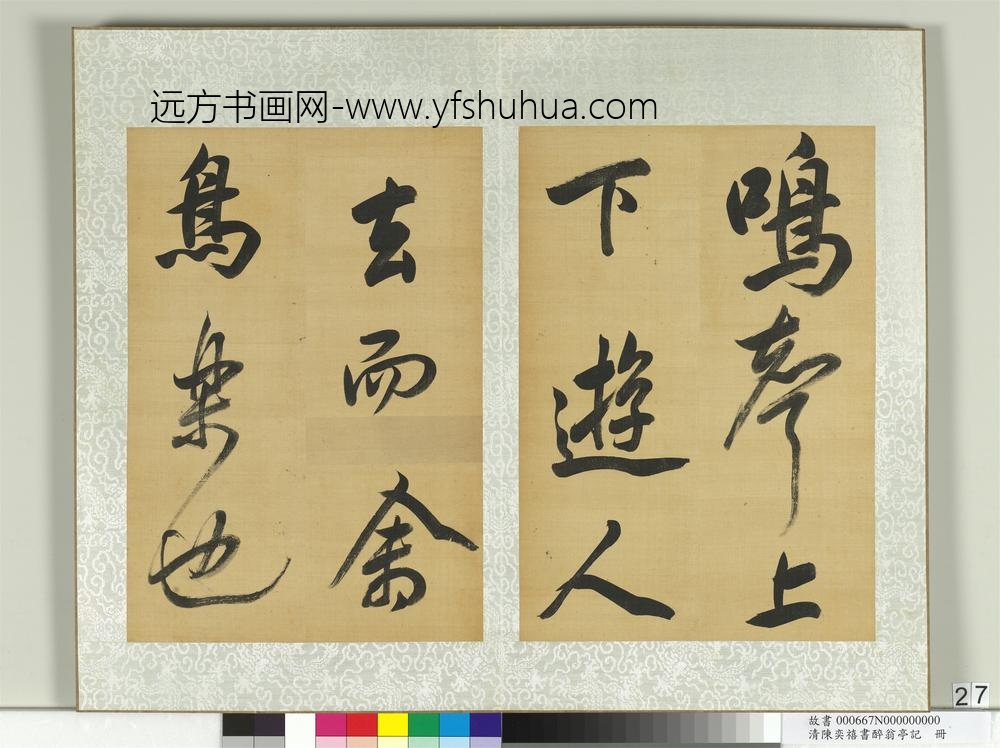 远方书画网-www.yfshuhua.com
鳴聲上
下遊人
去而禽
鳥樂也
27
故書 000667N000000000
清陳奕禧書醉翁亭記 冊